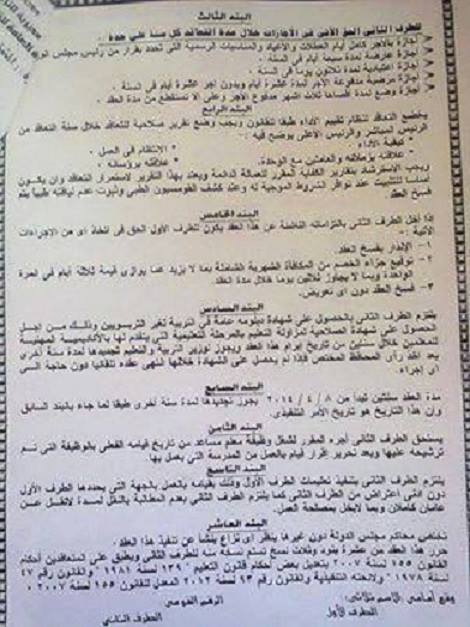 البند الثالث
للطرف الثاني الحق الأتي في الأجازات خلال مدة التعاقد كل منها علي حدة .
أجازة بالأجر كامل أيام العطلات والأعياد والمناسبات الرسمية التي تحدد بقرار من رئيس مجلس
أجازة عارضة لمدة سبعة أيام في السنة .
أجازة اعتيادية لمدة ثلاثون يوما في السنة .
أجازة مرضية مدفوعة الأجر لمدة عشرة أيام وبدون أجر عشرة أيام في السنة .
أجازة وضع لمدة أقصاها ثلاث أشهر مدفوع الأجر وعلي ألا تستقطع من مدة العقد .
البند الرابع
يخضع التعاقد لنظام تقييم الأداء طبقا للقانون ويجب وضع تقرير صلاحية للتعاقد خلال سنة التعاقد من
الرئيس المباشر والرئيس الأعلي يوضح فيه :-
• كيفية الأداء . • الانتظام في العمل .
• علاقته بزملائه والعاملين مع الوحدة . • علاقته برؤسائه .
ويجب الاسترشاد بتقارير الكفاية المقرر للعمالة الدائمة ويعتد بهذا التقرير لاستمرار التعاقد وان يكون
التثبيت عند توافر الشروط الموجبة له وعند كشف القومسيون الطبي وثبوت عدم لياقته طبيا يتم
فسخ العقد
البند الخامس
إذا أخل الطرف الثاني بالتزاماته الناشئة عن هذا العقد يكون للطرف الأول الحق في اتخاذ اى من الإجراءات
الآتية :-
١- الإنذار بفسخ العقد
٢- توقيع جزاء الخصم من المكافأة الشهرية الشاملة بما لا يزيد عما يوازي قيمة ثلاثة أيام في المرة
الواحدة وبما لا يجاوز ثلاثين يوما خلال مدة العقد .
٣- فسخ العقد دون أى تعويض .
البند السادس
يلتزم الطرف الثاني بالحصول على شهادة دبلومه عامة في التربية لغير التربويين وذلك من اجل
الحصول على شهادة الصلاحية لمزاولة التعليم بالمرحلة التعليمية التي يتقدم لها بالأكاديمية المهنية
للمعلمين خلال سنتين من تاريخ إبرام هذا العقد ويجوز لوزير التربية والتعليم تجديدها لمدة سنة أخرى
بعد اخذ رأى المحافظ المختص فإذا لم يحصل على الشهادة خلالها انتهى عقده تلقائيا دون حاجة إلى
أى إجراء .
البند السابع
مدة العقد سنتين تبدأ من ٨ / ٤ / ٢٠١٤ يجوز تجديدها لمدة سنة أخرى طبقا لما جاء بالبند السابق
وان هذا التاريخ هو تاريخ الأمر التنفيذي .
البند الثامن
يستحق الطرف الثاني أجره المقرر لشغل وظيفة معلم مساعد من تاريخ قيامه الفعلى بالوظيفة التى تم
ترشيحه عليها وبعد تحرير إقرار قيام بالعمل من المدرسة التي يعمل بها .
البند التاسع
يلتزم الطرف الثاني بتنفيذ تعليمات الطرف الأول وذلك بقيامه بالعمل بالجهة التي يحددها الطرف الأول
دون ادنى اعتراض من الطرف الثاني كما يلتزم الطرف الثاني بعدم المطالبة بالنقل لمدة لا تقل عن
عامان كاملان وبما لايخل بمصلحة العمل .
البند العاشر
تختص محاكم مجلس الدولة دون غيرها بنظر أى نزاع ينشأ عن تنفيذ هذا العقد .
حرر هذا العقد من عشرة بنود وثلاث نسخ تسلم نسخة منه للطرف الثاني ويطبق على المتعاقدين أحكام
القانون ١٥٥ لسنة ٢٠٠٧ بتعديل بعض أحكام قانون التعليم " ١٣٩ لسنة ١٩٨١ " والقانون رقم ٤٧
لسنة ١٩٧٨ " ولائحته التنفيذية والقانون رقم ٩٣ لسنة ٢٠١٢ المعدل للقانون ١٥٥ لسنة ٢٠٠٧ .
وقع أمامي (الاسم ثلاثي) الرقم القومي
الطرف الأول الطرف الثاني